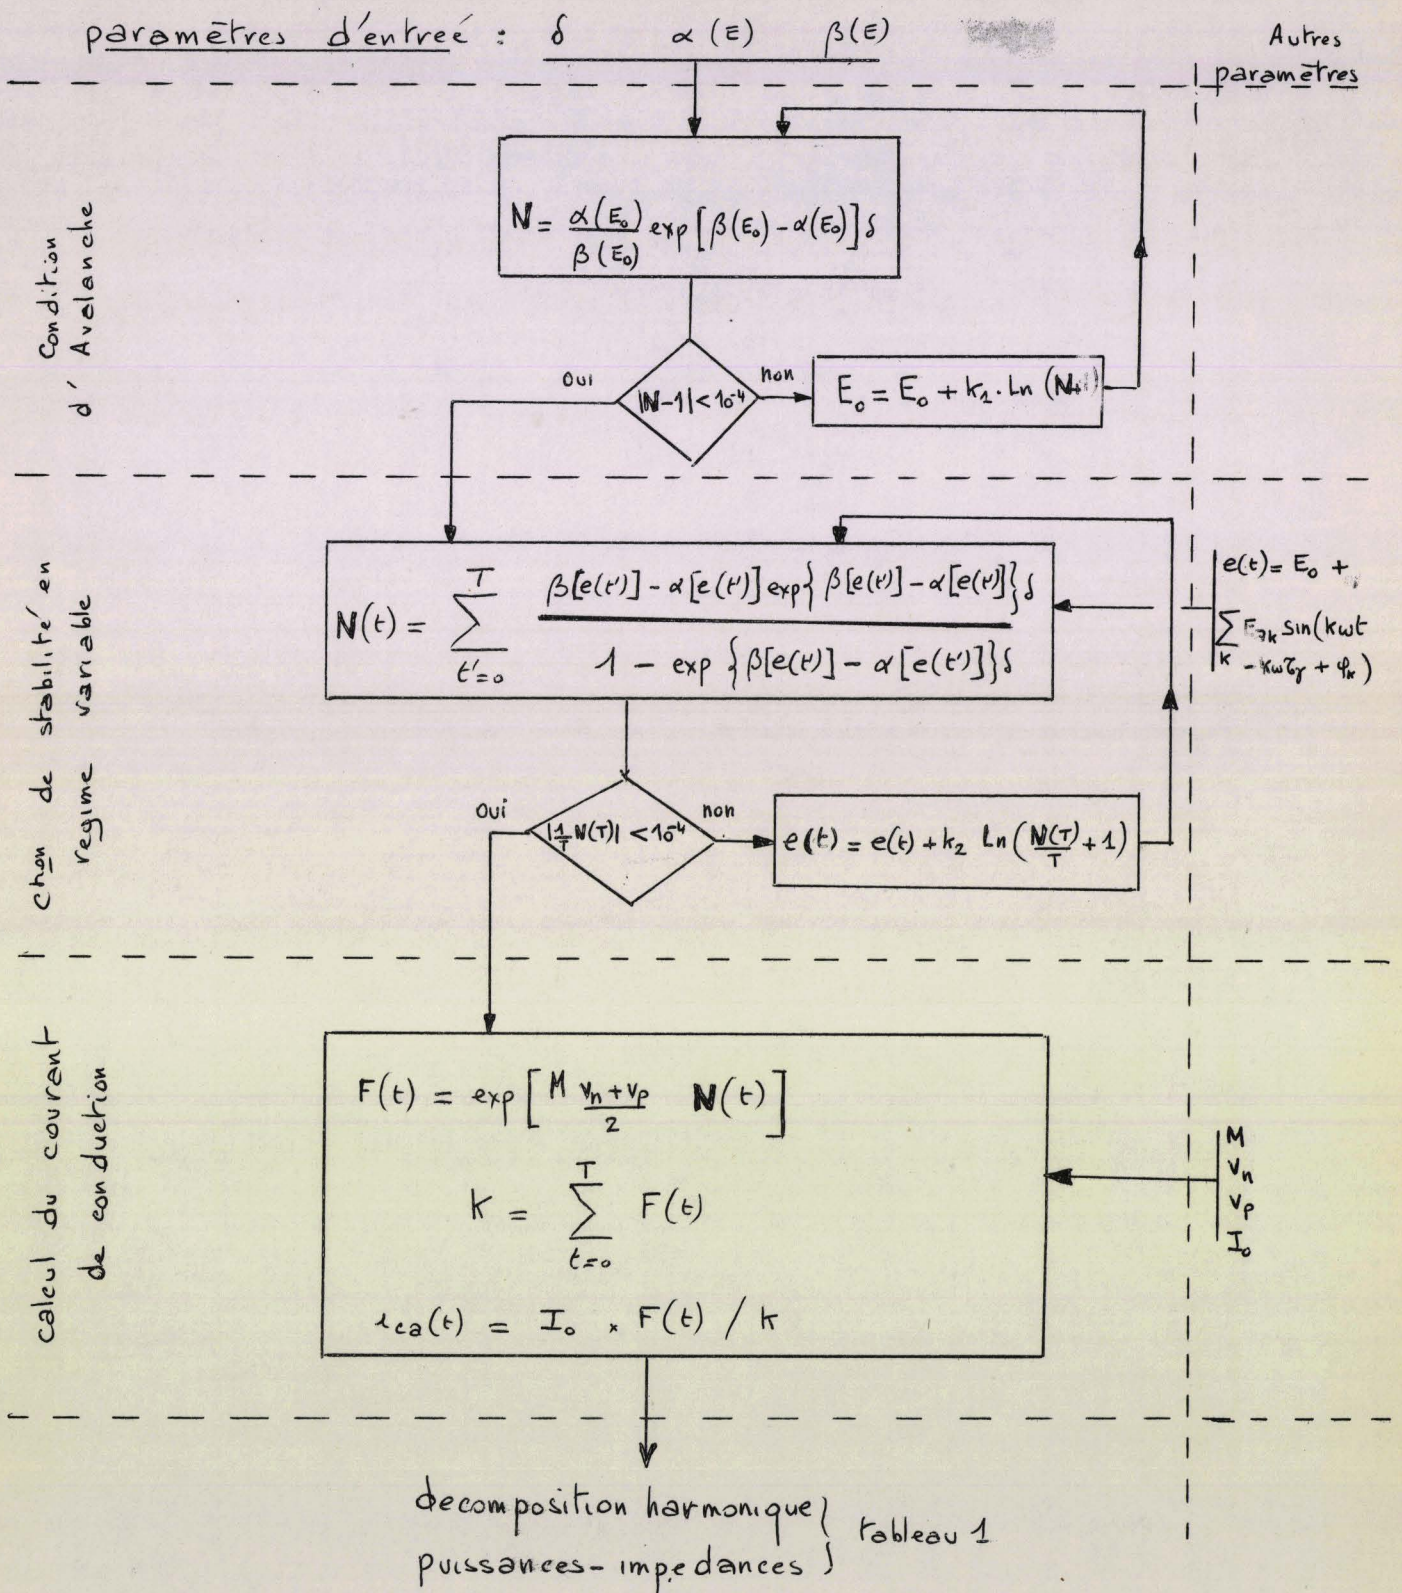 paramētres d'entreé : δ α (E) β(E)
Autres
paramētres
Condition
d' Avalanche
N = α(E₀)/β(E₀) exp[β(E₀) - α(E₀)]δ
oui
|N-1| < 10⁻⁴
non
E₀ = E₀ + k₁. Ln (N
chon de stabilité en
regime variable
N(t) = ∑_{t'=0}^{T} β[e(t')] - α[e(t')] exp{β[e(t')] - α[e(t')]}δ / 1 - exp {β[e(t')] - α[e(t')]}δ
e(t) = E₀ +
∑_k sin(kωt
- kωτ + φₖ)
oui
|1/T N(T)| < 10⁻⁴
non
e(t) = e(t) + k₂ Ln(N(T)/T + 1)
calcul du courant
de conduction
F(t) = exp [M vₙ+vₚ/2 N(t)]
K = ∑_{t=0}^{T} F(t)
ica(t) = I₀ × F(t) / K
M
vₙ
vₚ
I₀
decomposition harmonique }
puissances - impedances }
tableau 1